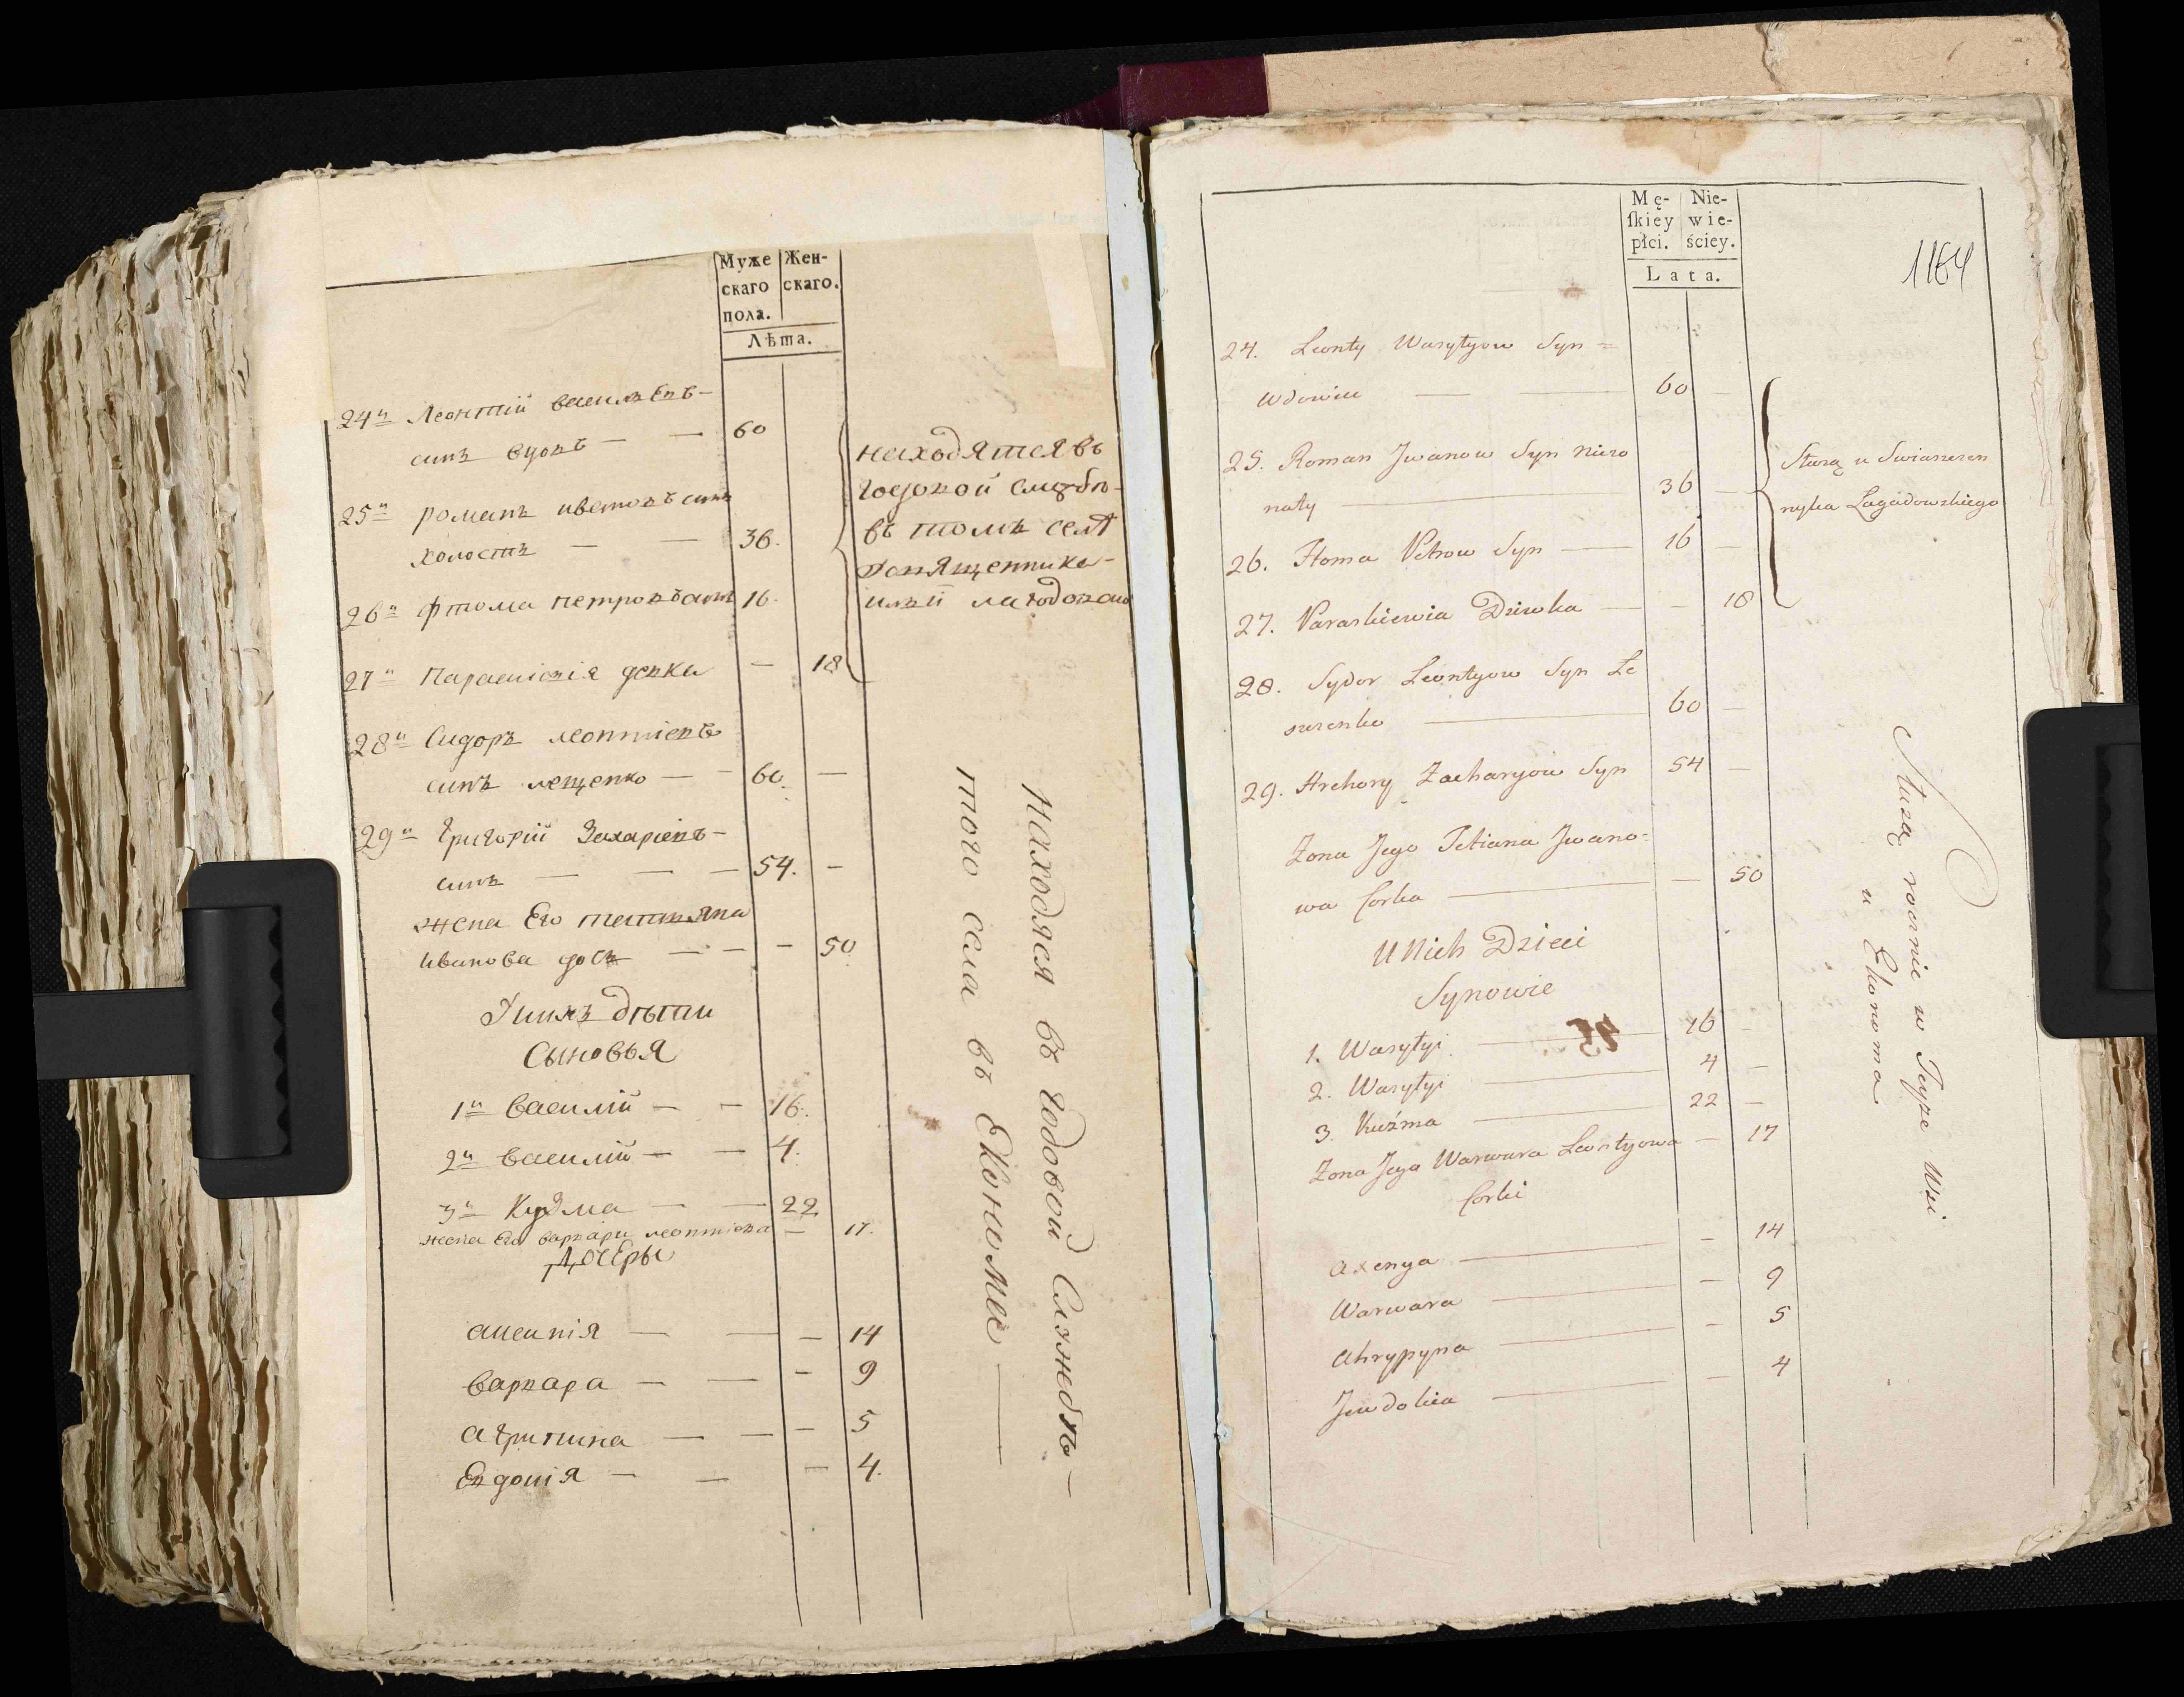 Муже
скаго
пола.
Жен-
скаго.
Лѣта.
24й Леонтий василѣвъ
синъ вдовъ — — 60
25й романъ ивановъ синъ
холостъ — — 36.
26й фтома петровъ синъ 16.
27й Параскевія девка — 18
находятся въ
годовой службѣ
въ томъ селѣ
28й Сидоръ леонтіевъ
синъ лещенко — — 60. —
29й Григорій Захаріевъ
синъ — — — 54. —
жена Его
иванова дочь — — — 50.
У нихъ дѣти
Сыновья
1й василий — — 16.
2й василий — — 4.
3й Кузма — — 22
жена Его варвара леонтиева — 17.
Дочеры
— — — 14
варвара — — — 9
агрипина — — — 5
— — — 4.
Находяся въ годовой Службѣ —
того села въ Економа —
Mę-
ſkiey
płci.
Nie-
wie-
ściey.
Lata.
1164
24. Leonty Wasylyow Syn =
Wdowiec — — 60 —
25. Roman Jwanow Syn nieżo
naty — 36 —
26. Htoma Petrow Syn — 16 —
27. Paraskiewia Dziwka — — 18
Służą u Swiaszczen
nyka Lagadowskiego
28. Sydor Leontyow Syn Le
szczenko — 60 —
29. Hrehory Zacharyow Syn 54 —
Zona Jego Tetiana Jwano-
wa Corka — — 50
U Nich Dzieci
Synowie
1. Wasylyi — 16 —
2. Wasylyi — 4 —
3. Kuźma — 22 —
Zona Jego Warwara Leontyowa — 17
Corki
Axenya — — 14
Warwara — — 9
Ahrypyna — — 5
Jewdokia — — 4
Służą rocznie w Teyże Wsi
u Ekonoma